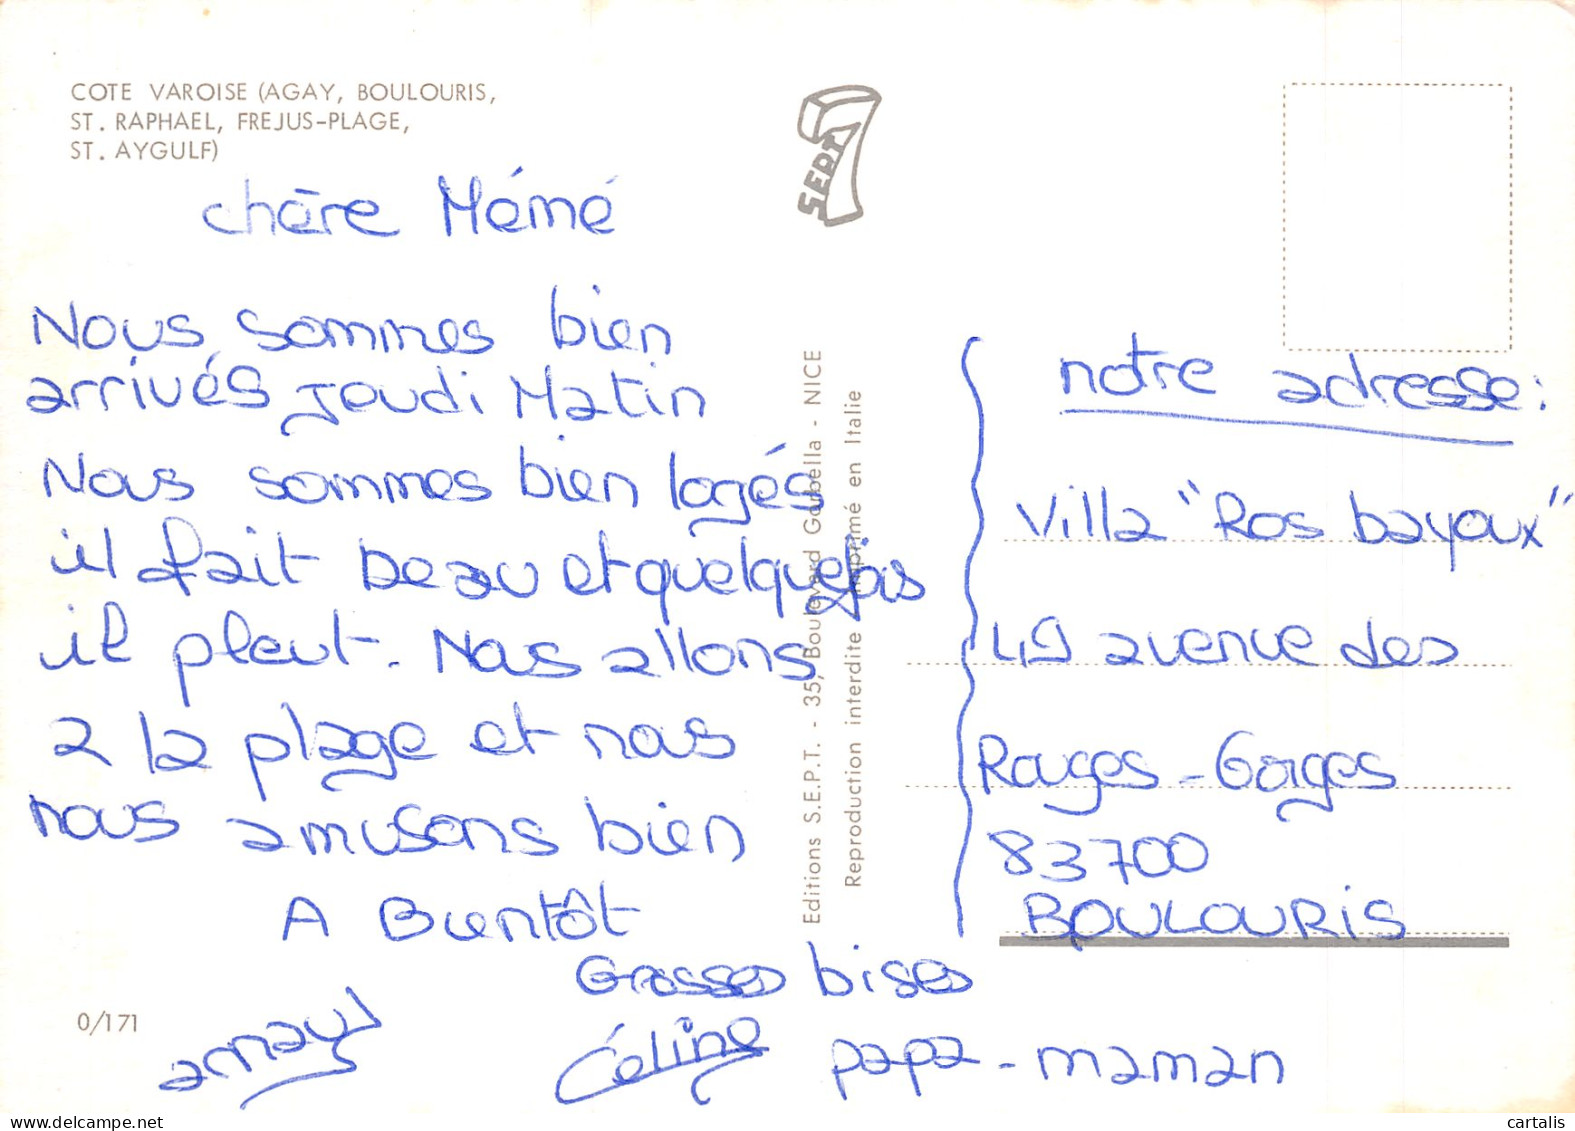 COTE VAROISE (AGAY, BOULOURIS,
ST. RAPHAEL, FREJUS-PLAGE,
ST. AYGULF)
SEPT
chère Mémé
Nous sommes bien
arrivés Jeudi Matin
Nous sommes bien logés
il fait beau et quelquefois
il pleut. Nous allons
a la plage et nous
nous amusons bien
A Bientôt
Grosses bises
arnaud
Céline papa - maman
0/171
Editions S.E.P.T. - 35, Boulevard Gorbella - NICE
Reproduction interdite Imprimé en Italie
notre adresse :
Villa "Ros bayoux"
49 avenue des
Rouges - Gorges
83700
BOULOURIS
www.delcampe.net
cartalis